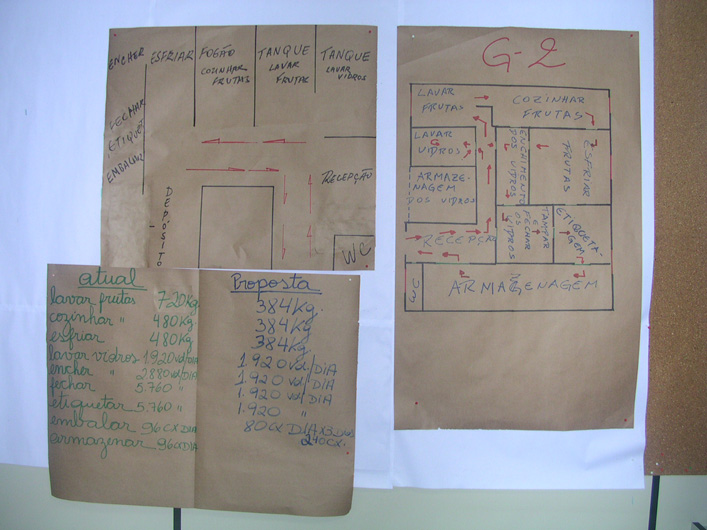 ENCHER
ESFRIAR
FOGÃO
COZINHAR
FRUTAS
TANQUE
LAVAR
FRUTAS
TANQUE
LAVAR
VIDROS
FECHAR
ETIQUET
EMBALAR
DEPÓSITO
RECEPÇÃO
WC
atual
lavar frutas 720Kg.
cozinhar " 480Kg.
esfriar 480Kg.
lavar vidros 1920 vd/DIA
encher " 2880 vd/DIA
fechar 5.760 "
etiquetar 5.760 "
embalar 96 CX DIA
armazenar 96 CX DIA
Proposta
384Kg.
384Kg
384Kg
1.920 vd/DIA
1.920 vd/DIA
1.920 vd/DIA
1.920 "
80 CX DIA X 3 DIAS
240 CX.
G-2
LAVAR
FRUTAS
COZINHAR
FRUTAS
LAVAR
VIDROS
ENCHIMENTO
DOS VIDROS
ESFRIAR
FRUTAS
ARMAZE-
NAGEM
DOS VIDROS
TAMPAR
E
FECHAR
OS
VIDROS
ETIQUETA-
GEM
RECEPÇÃO
ARMAZENAGEM